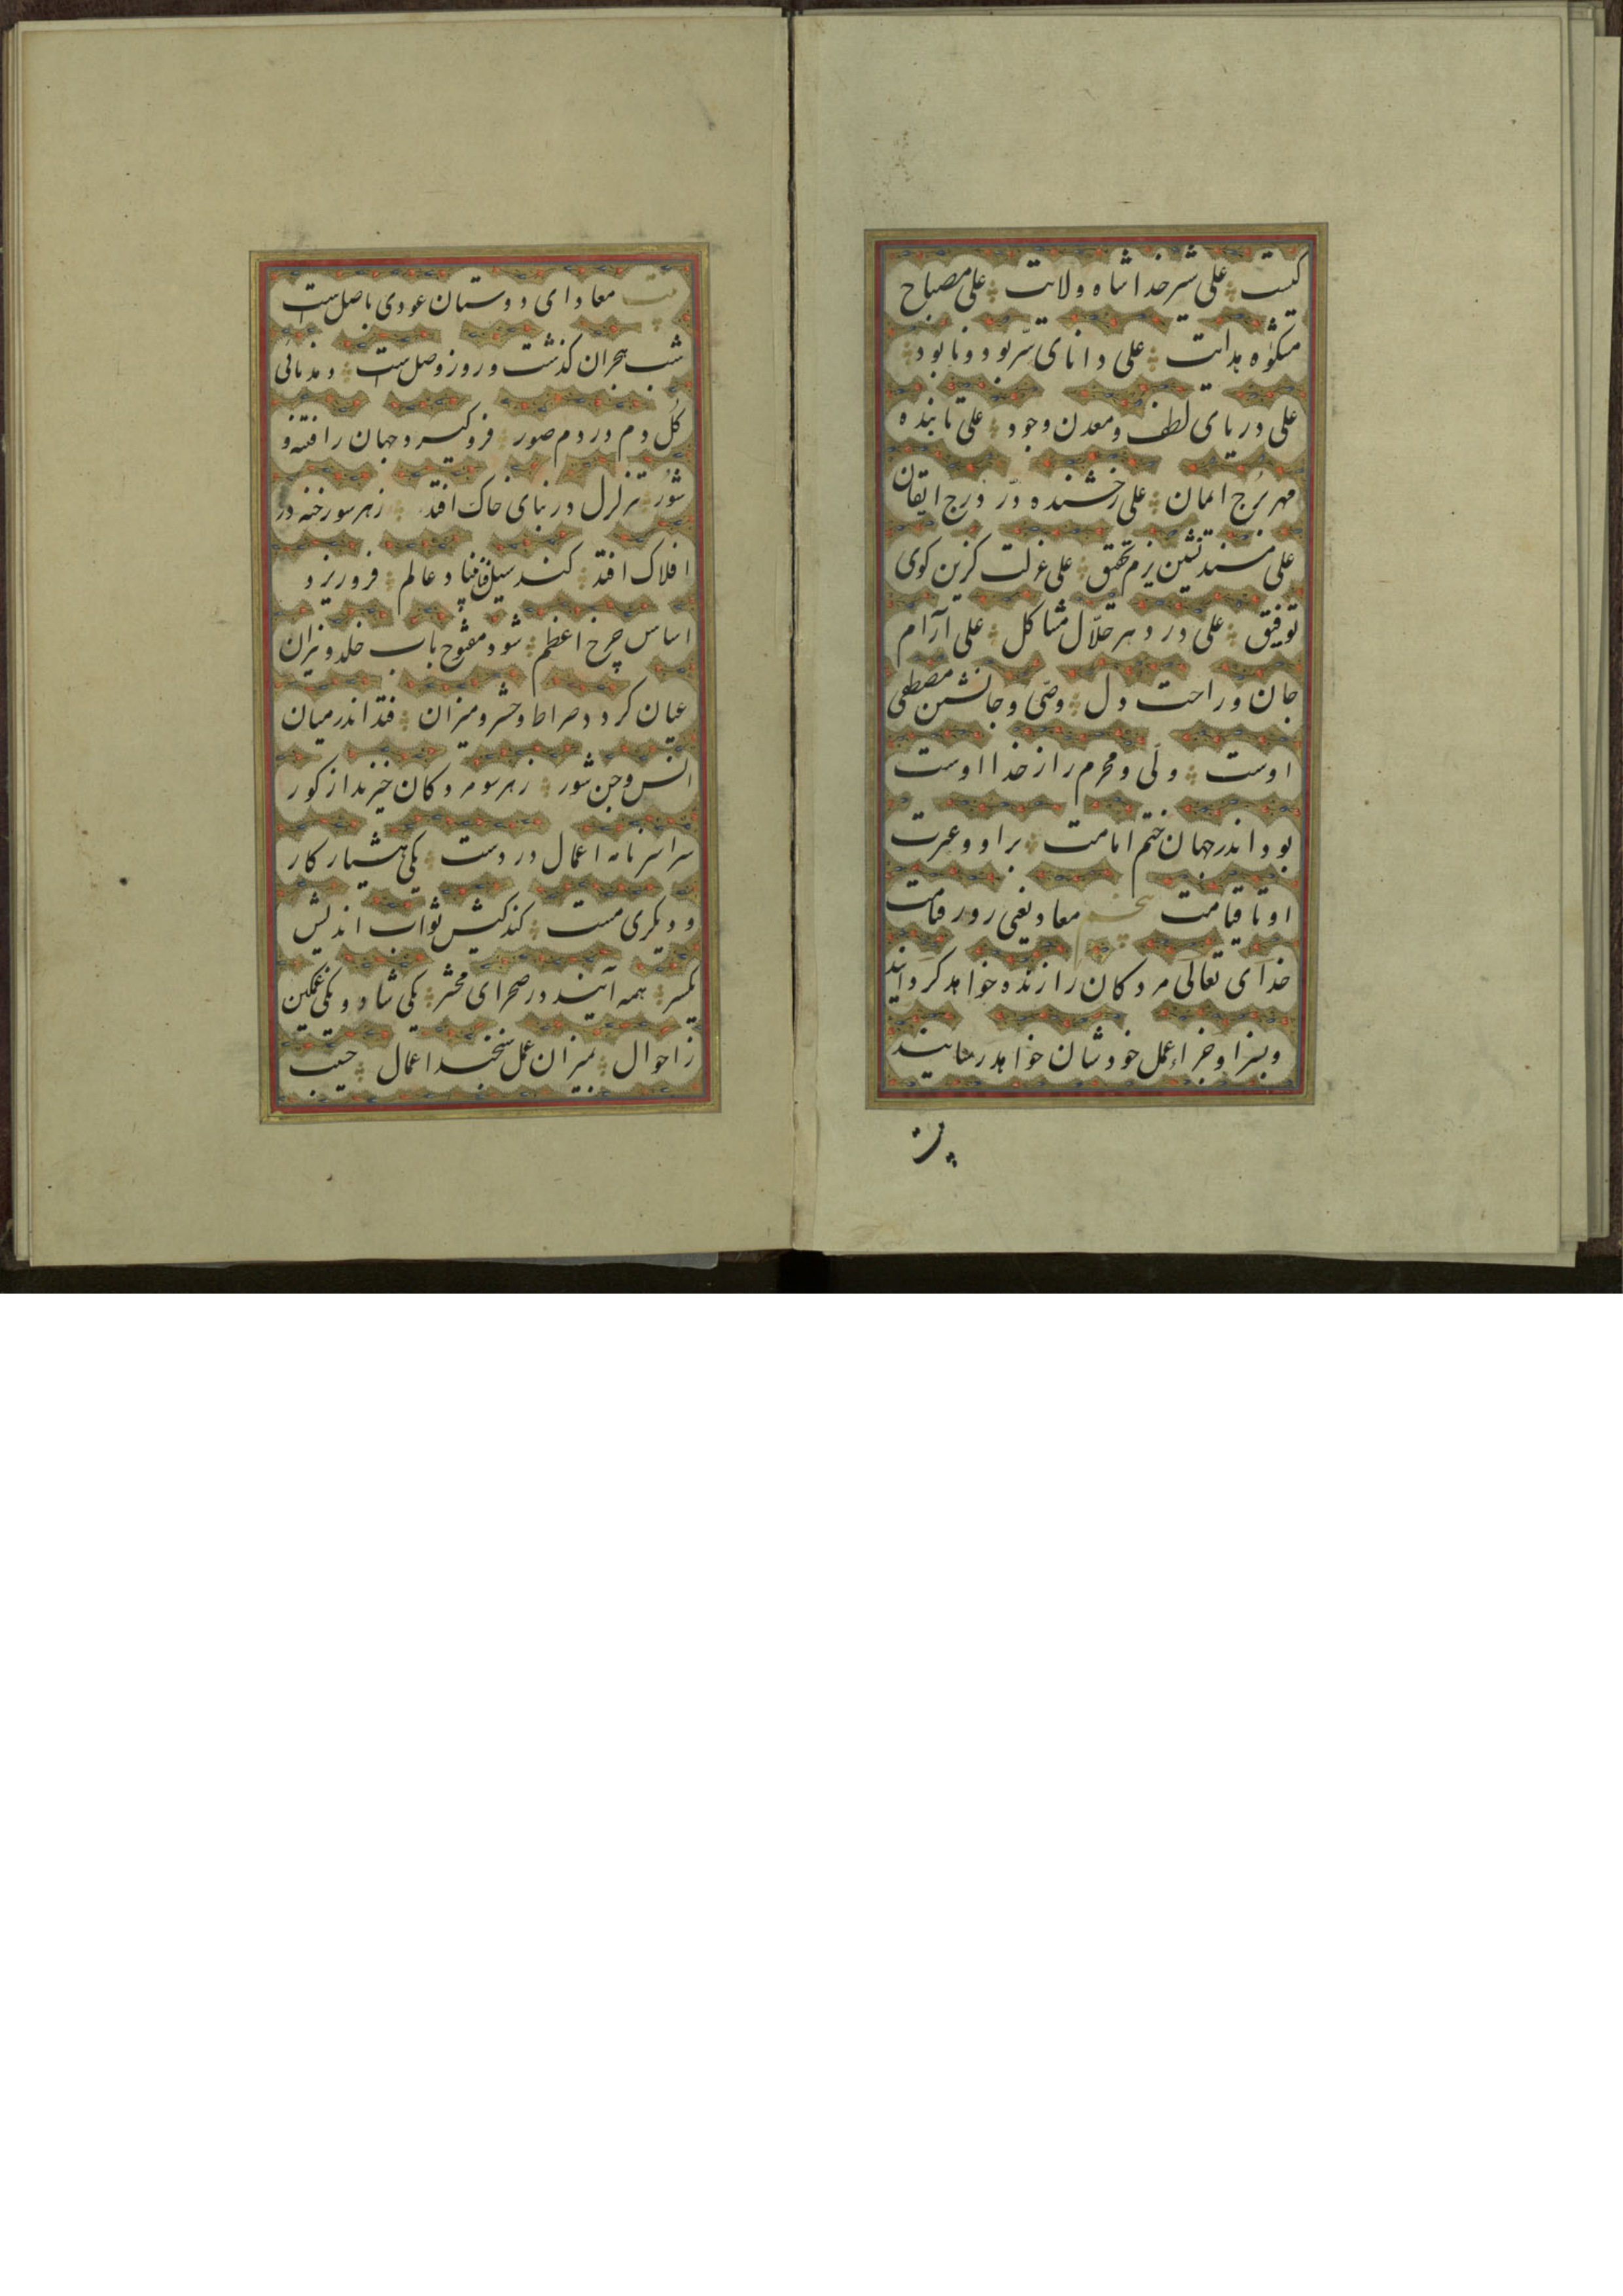 کیست علی شیر خدا شاه ولایت علی مصباح
مشکوٰه هدایت علی دانای سرّ بود و نابود
علی دریای لطف و معدن وجود علی تابنده
مهر بُرج ایمان علی رخشنده دُرّ دُرج ایقان
علی مسند نشین بزم تحقیق علی عزلت کزین کوی
توفیق علی در دهر حلّال مشاکل علی آرام
جان و راحت دل وصّی و جانشین مصطفی
اوست ولّی و محرم راز خدا اوست
بود اندر جهان ختم امامت بر او و عترت
او تا قیامت پنجم معاد یعنی روز قیامت
خدای تعالی مردکان را زنده خواهد کردانید
و بسزا و جزاء عمل خودشان خواهد رسانید
بیت
بیت معاد ای دوستان عودی باصل است
شب هجران کذشت و روز وصل است دمد نائی
کُل دم در دم صور فرو کیرد جهان را فتنه و
شور تزلزل در بنای خاک افتد زهر سو رخنه در
افلاک افتد کند سیل فنا عالم فرو ریزد
اساس چرخ اعظم شود مفتوح باب خلد و نیران
عیان کردد صراط و حشر و میزان فتد اندر میان
انس و جن شور زهر سو مردکان خیزند از کور
سراسر نامه اعمال در دست یکی هشیار کار
و دیکری مست کند کیش ثواب اندیش
یکسر همه آیند در صحرای محشر یکی شاد و یکی غمکین
ز احوال بمیزان عمل سنجند اعمال حبیب